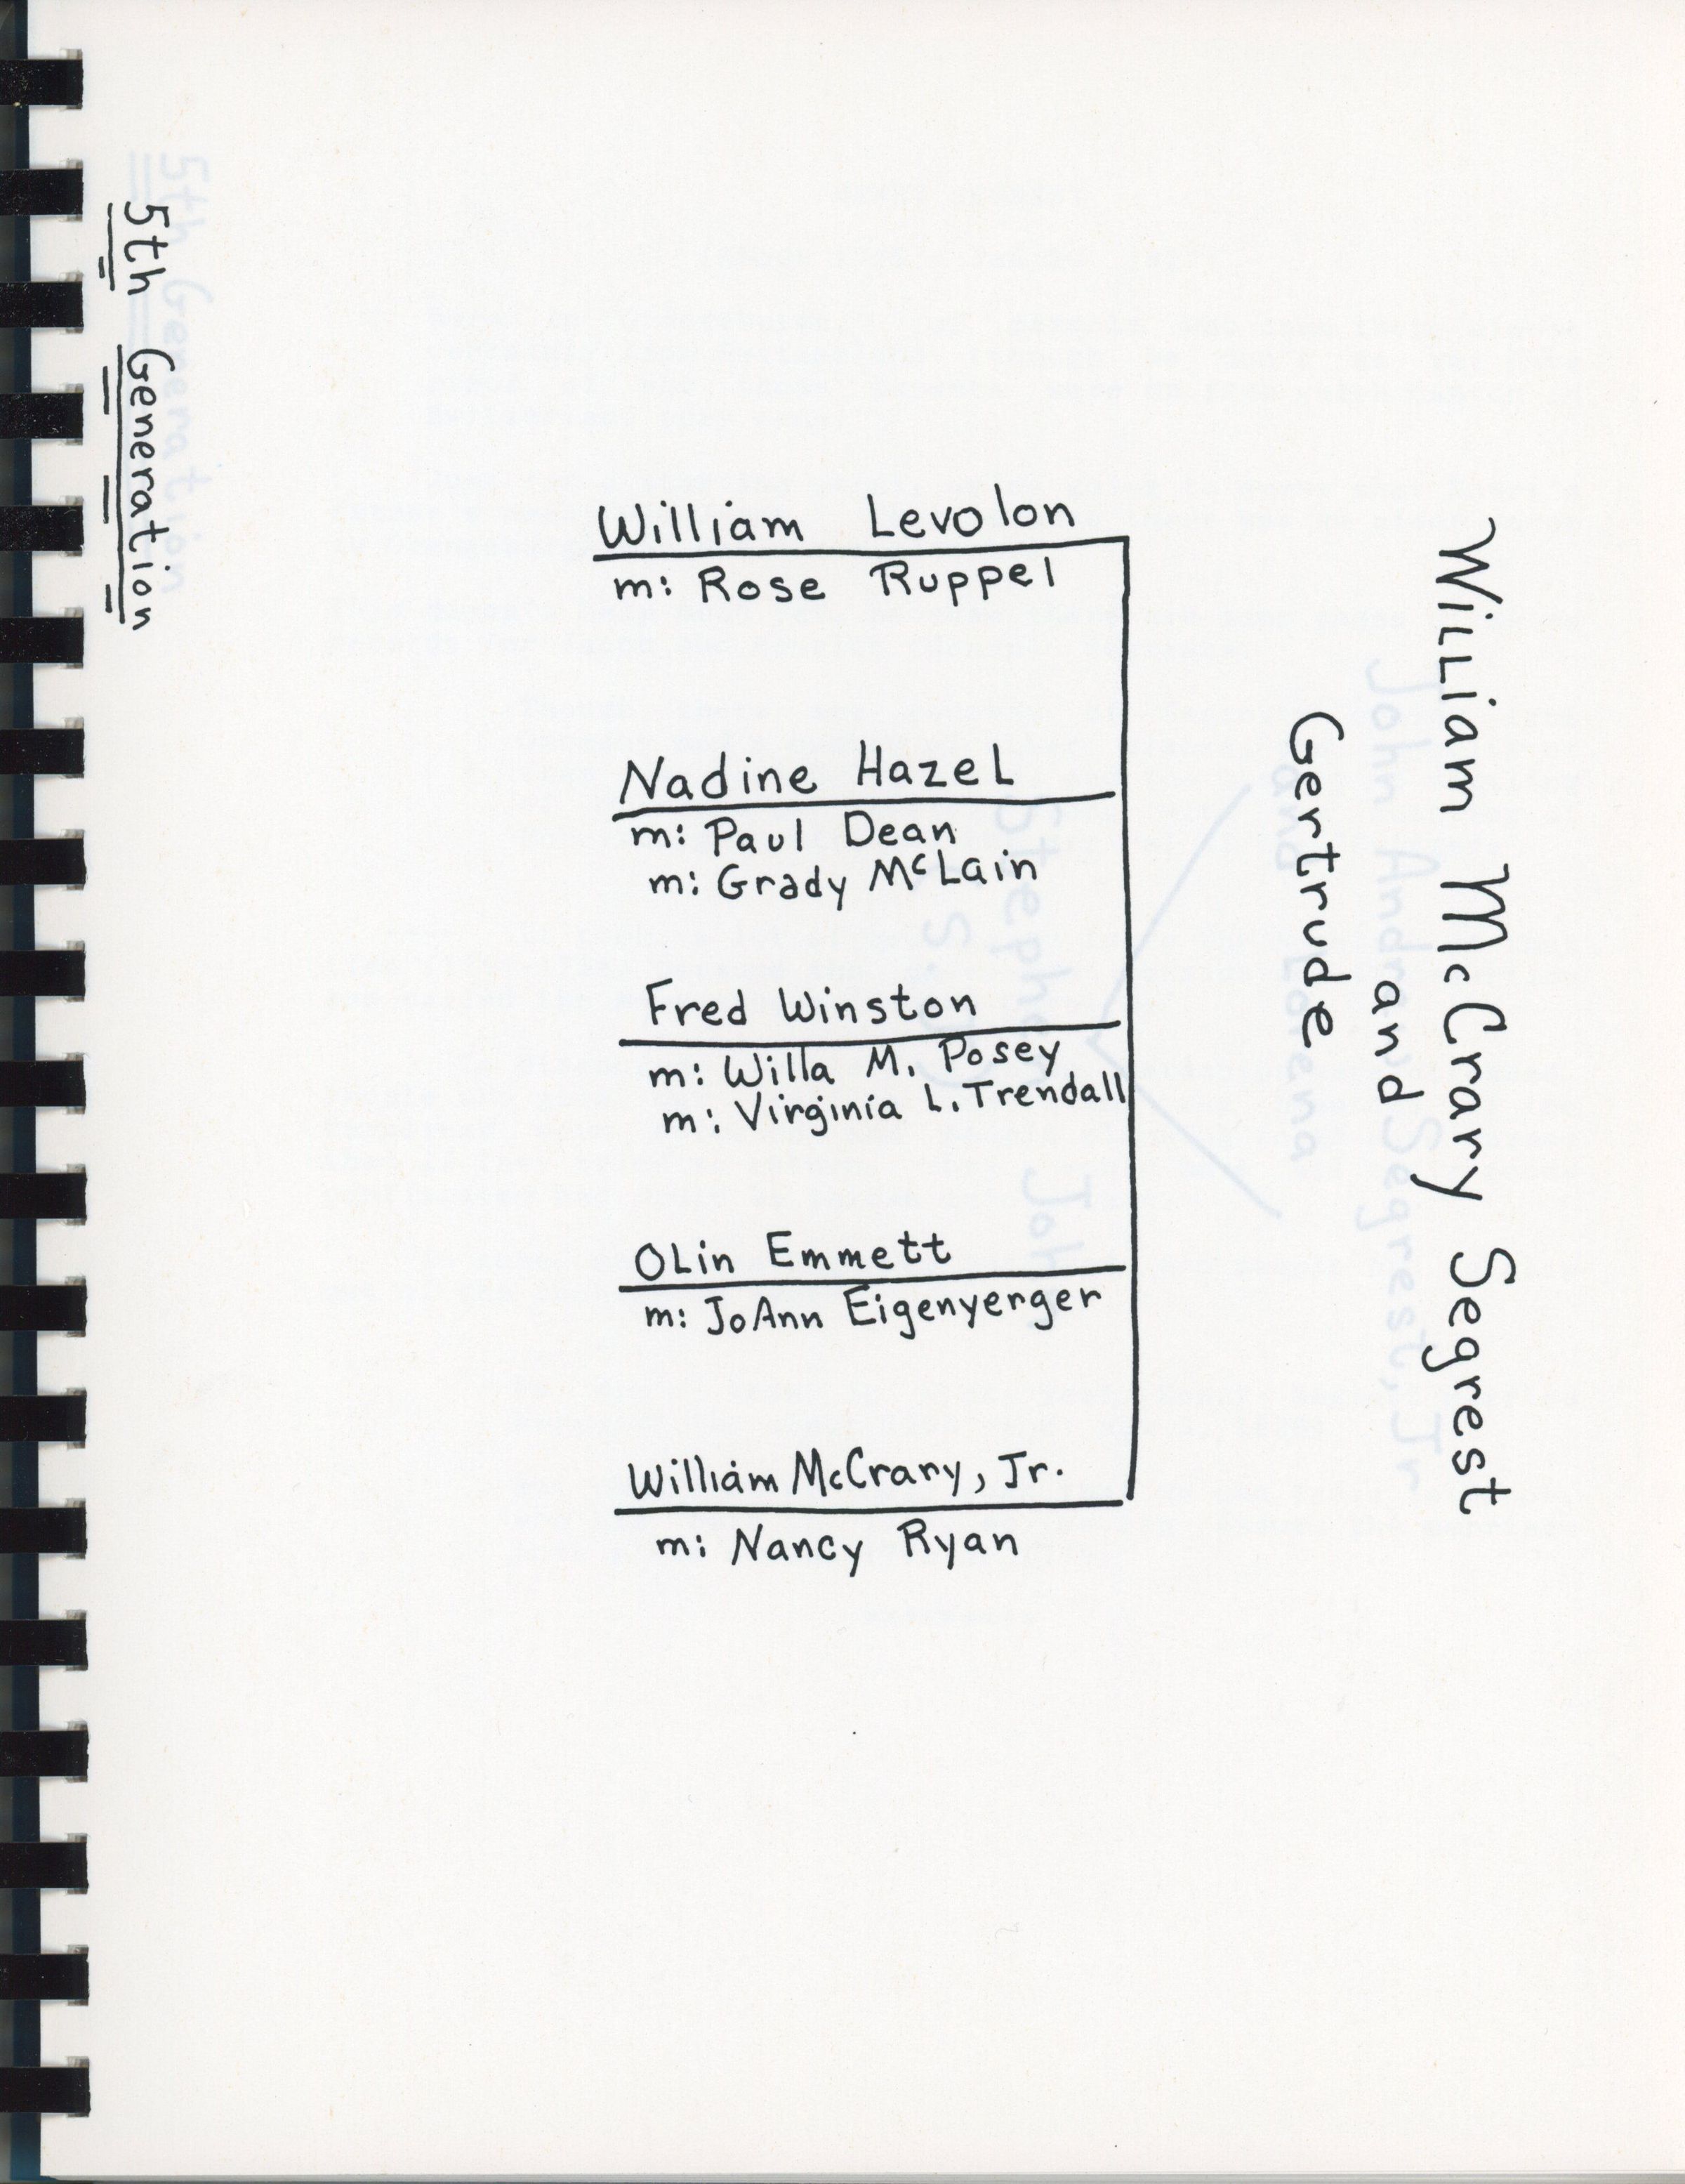 William McCrary Segrest
and
Gertrude
William Levolon
m: Rose Ruppel
Nadine Hazel
m: Paul Dean
m: Grady McLain
Fred Winston
m: Willa M. Posey
m: Virginia L. Trendall
Olin Emmett
m: JoAnn Eigenyerger
William McCrary, Jr.
m: Nancy Ryan
5th Generation